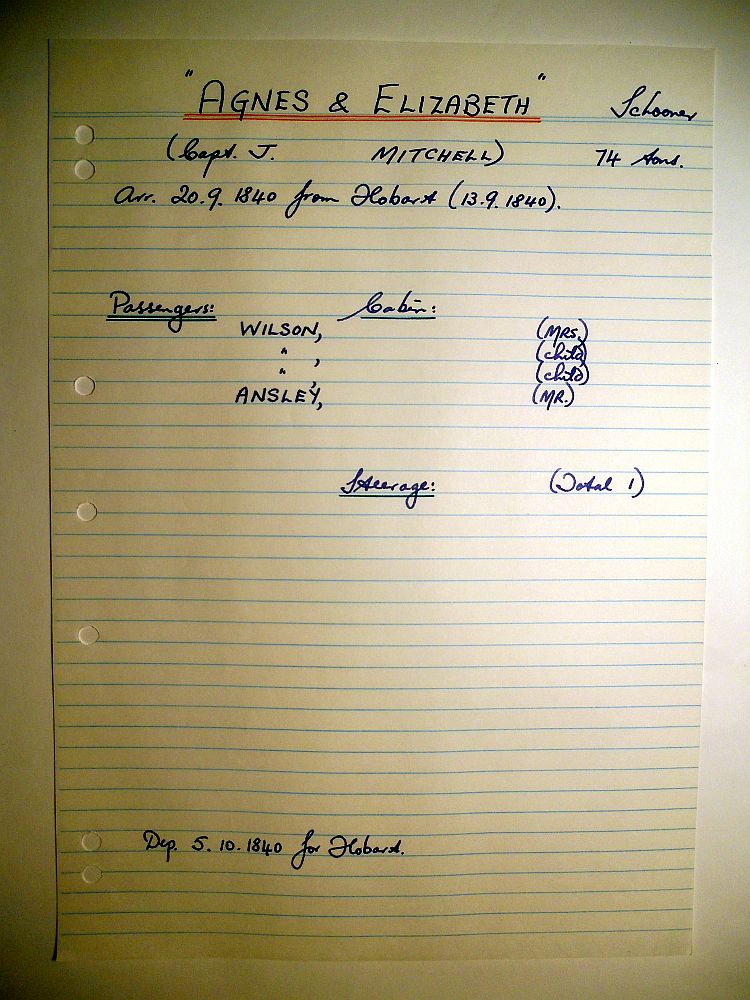 "AGNES & ELIZABETH" Schooner
(Capt. J. MITCHELL) 74 tons.
Arr. 20.9.1840 from Hobart (13.9.1840).
Passengers: Cabin:
WILSON, (MRS.)
" , (child)
" , (child)
ANSLEY, (MR.)
Steerage: (Total 1)
Dep. 5.10.1840 for Hobart.